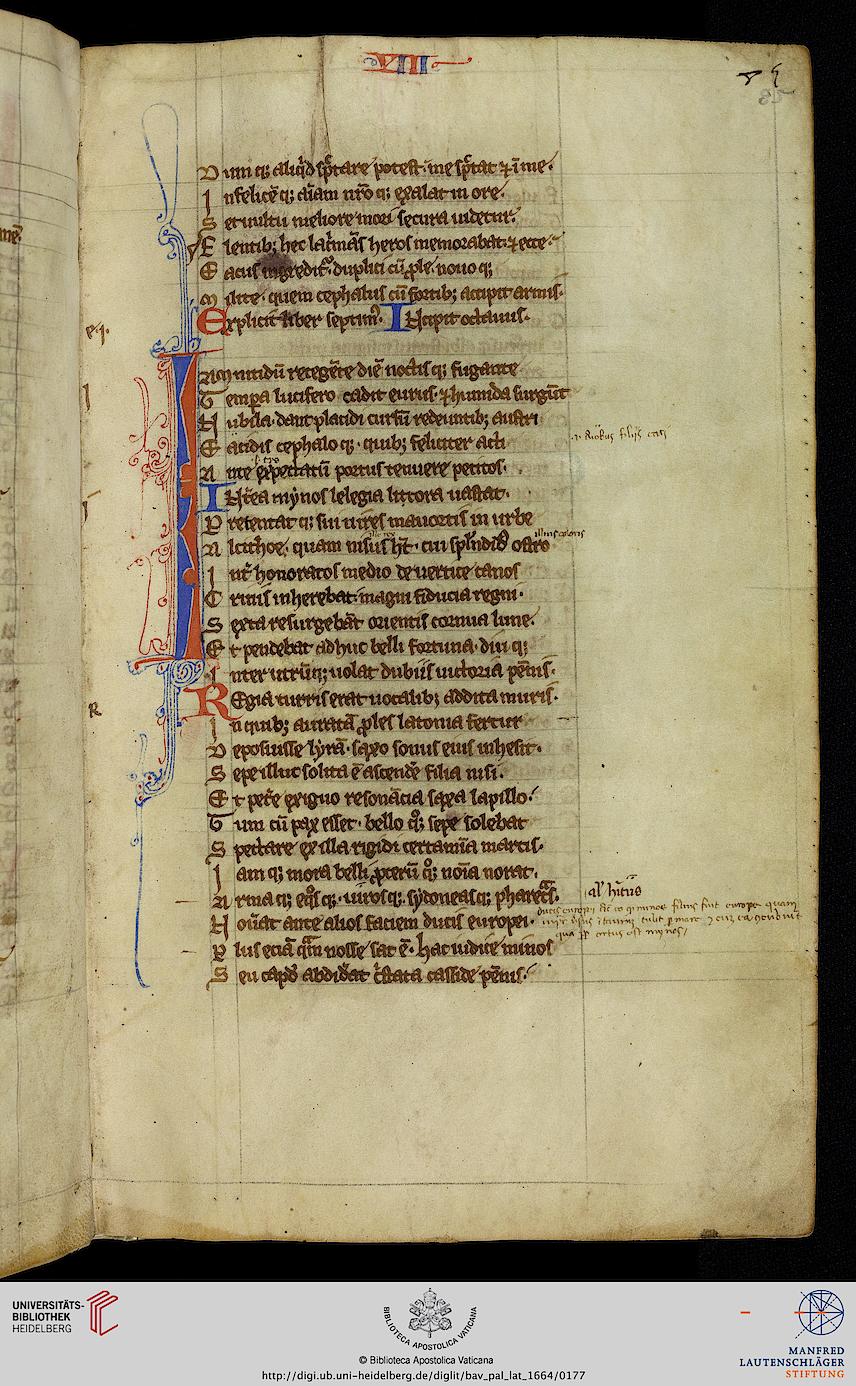 VIII
D um q; aliq̇d sp̄tare potest. me sp̄tat ⁊ ī me.
I nfelicē q; aīam nr̄o q; exalat in ore.
S et uultu meliore mori secura uidetur.
F lentib; hec lac̄mās heros memorabat. ⁊ ecce.
E acus ingredit̄. duplici cū ꝓle. nouo q;
M ilite. quem cephalus cū fortib; accipit armis.
Explicit liber septim⁹. Incipit octauus.
e.i.
IAm nitidū retegēte diē noctis q; fugante
T empa lucifero cadit eurus. ⁊ humida surgūt
N ubila. dant placidi cursū redeuntib; austri
E acidis cephalo q;. quib; feliciter acti
A nte expectatū portus tenuere petitos.
INt̄ea mynos lelegia littora uastat.
P retentat q; sui uires mauortis in urbe
A lcithoe. quam nisus h̄t. cui splēdid⁹ ostro
I nt̄ honoratos medio de uertice canos
C rinis inherebat. magni fiducia regni.
S exta resurgebāt orientis cornua lune.
E t pendebat adhuc belli fortuna. diu q;
I nter utrūq; uolat dubiis uictoria pēnis.
REgia turris erat uocalib; addita muris.
I n quib; auratā ꝓles latonia fertur
D eposuisse lyrā. saxo sonus eius inhesit.
S epe illuc solita ē ascendē filia nisi.
E t pet̄e exiguo resonācia saxa lapillo.
T um cū pax esset. bello q̊; sepe solebat
S pectare ex illa rigidi certamīa martis.
I am q; mora belli ꝓcerū q̊; noīa norat.
A rma q; eq̊s q;. uiros q;. sydoneas q; pharet̄s.
al' h̄itus
N ou̅at ante alios faciem ducis europei.
P lus eciā q̄m nosse sat ē. hac iudice minos
S eu cap̄d abdid̄at c̄stata casside pēnis.
UNIVERSITÄTS-
BIBLIOTHEK
HEIDELBERG
BIBLIOTHECA APOSTOLICA VATICANA
© Biblioteca Apostolica Vaticana
http://digi.ub.uni-heidelberg.de/diglit/bav_pal_lat_1664/0177
MANFRED
LAUTENSCHLÄGER
STIFTUNG